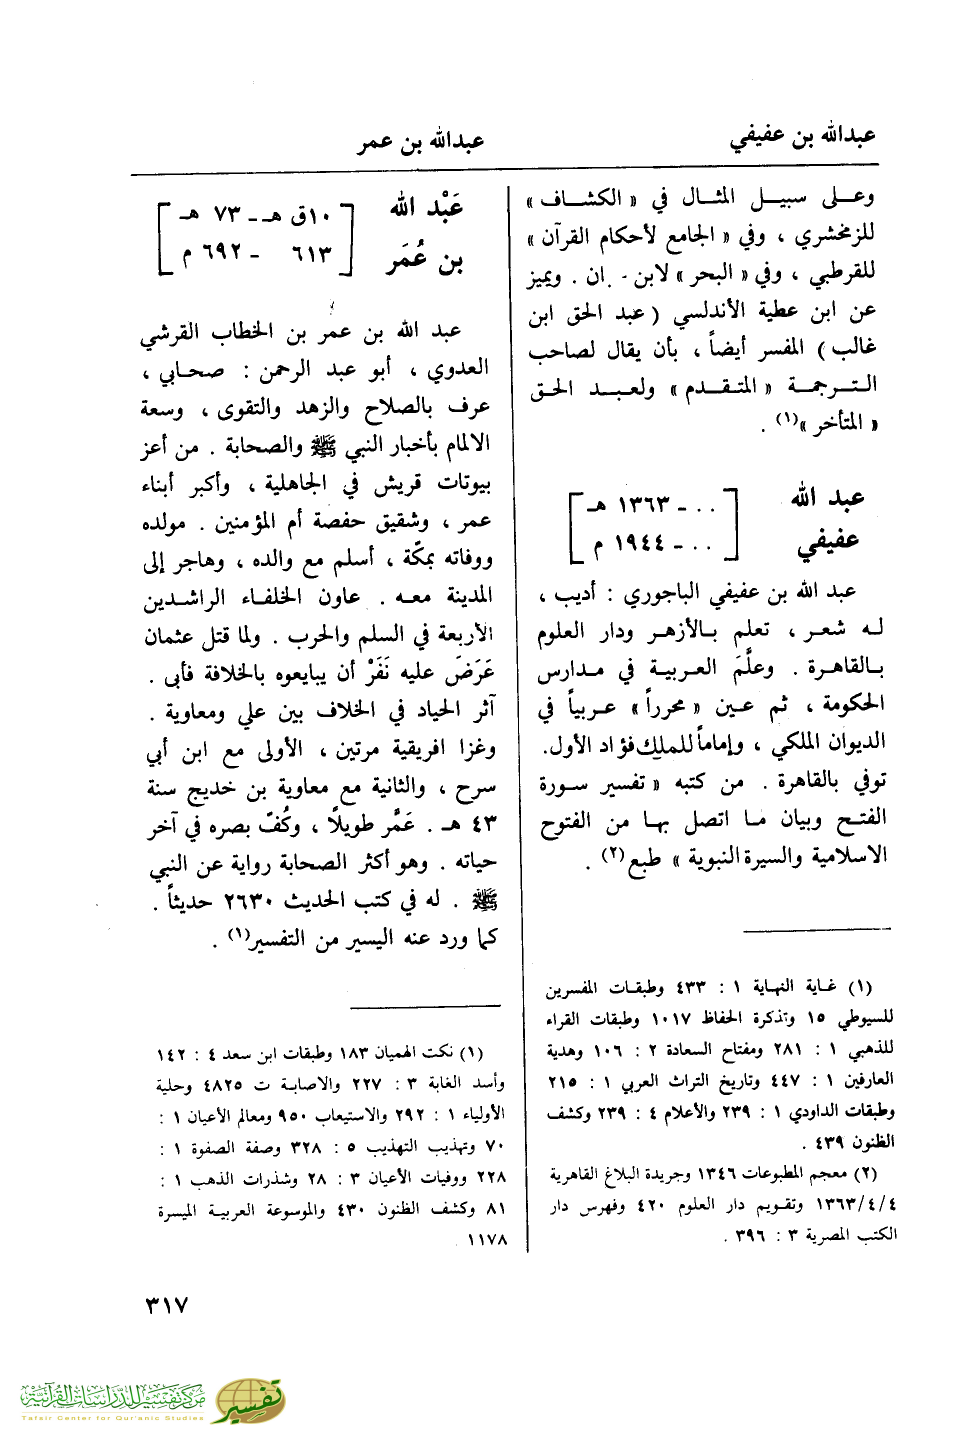 عبدالله بن عفيفي
عبدالله بن عمر
وعلى سبيل المثال في « الكشاف »
للزمخشري ، وفي « الجامع لأحكام القرآن »
للقرطبي ، وفي « البحر » لابن ان . ويميز
عن ابن عطية الأندلسي ( عبد الحق ابن
غالب ) المفسر أيضاً ، بأن يقال لصاحب
الترجمة « المتقدم » ولعبد الحق
« المتأخر »(١) .
عبد الله [ .. ـ ١٣٦٣ هـ
عفيفي .. ـ ١٩٤٤ م ]
عبد الله بن عفيفي الباجوري : أديب ،
له شعر ، تعلم بالأزهر ودار العلوم
بالقاهرة . وعلَّمَ العربية في مدارس
الحكومة ، ثم عين « محرراً » عربياً في
الديوان الملكي ، وإماماً للملك فؤاد الأول.
توفي بالقاهرة . من كتبه « تفسير سورة
الفتح وبيان ما اتصل بها من الفتوح
الاسلامية والسيرة النبوية » طبع(٢) .
(١) غاية النهاية ١ : ٤٣٣ وطبقات المفسرين
للسيوطي ١٥ وتذكرة الحفاظ ١٠١٧ وطبقات القراء
للذهبي ١ : ٢٨١ ومفتاح السعادة ٢ : ١٠٦ وهدية
العارفين ١ : ٤٤٧ وتاريخ التراث العربي ١ : ٢١٥
وطبقات الداودي ١ : ٢٣٩ والأعلام ٤ : ٢٣٩ وكشف
الظنون ٤٣٩ .
(٢) معجم المطبوعات ١٣٤٦ وجريدة البلاغ القاهرية
١٣٦٣/٤/٤ وتقويم دار العلوم ٤٢٠ وفهرس دار
الكتب المصرية ٣ : ٣٩٦ .
عَبْد الله [ ١٠ق هـ ـ ٧٣ هـ
بن عُمَر ٦١٣ ـ ٦٩٢ م ]
عبد الله بن عمر بن الخطاب القرشي
العدوي ، أبو عبد الرحمن : صحابي ،
عرف بالصلاح والزهد والتقوى ، وسعة
الالمام بأخبار النبي ﷺ والصحابة . من أعز
بيوتات قريش في الجاهلية ، وأكبر أبناء
عمر ، وشقيق حفصة أم المؤمنين . مولده
ووفاته بمكّة ، أسلم مع والده ، وهاجر إلى
المدينة معه . عاون الخلفاء الراشدين
الأربعة في السلم والحرب . ولما قتل عثمان
عَرَضَ عليه نَفَرْ أن يبايعوه بالخلافة فأبى .
آثر الحياد في الخلاف بين علي ومعاوية .
وغزا افريقية مرتين ، الأولى مع ابن أبي
سرح ، والثانية مع معاوية بن خديج سنة
٤٣ هـ . عَمَّر طويلاً ، وكُفّ بصره في آخر
حياته . وهو أكثر الصحابة رواية عن النبي
ﷺ . له في كتب الحديث ٢٦٣٠ حديثاً .
كما ورد عنه اليسير من التفسير(١) .
(١) نكت الهميان ١٨٣ وطبقات ابن سعد ٤ : ١٤٢
وأسد الغابة ٣ : ٢٢٧ والاصابة ت ٤٨٢٥ وحلية
الأولياء ١ : ٢٩٢ والاستيعاب ٩٥٠ ومعالم الأعيان ١ :
٧٠ وتهذيب التهذيب ٥ : ٣٢٨ وصفة الصفوة ١ :
٢٢٨ ووفيات الأعيان ٣ : ٢٨ وشذرات الذهب ١ :
٨١ وكشف الظنون ٤٣٠ والموسوعة العربية الميسرة
١١٧٨ .
٣١٧
مركز تفسير للدراسات القرآنية
Tafsir Center for Qur'anic Studies
تفسير